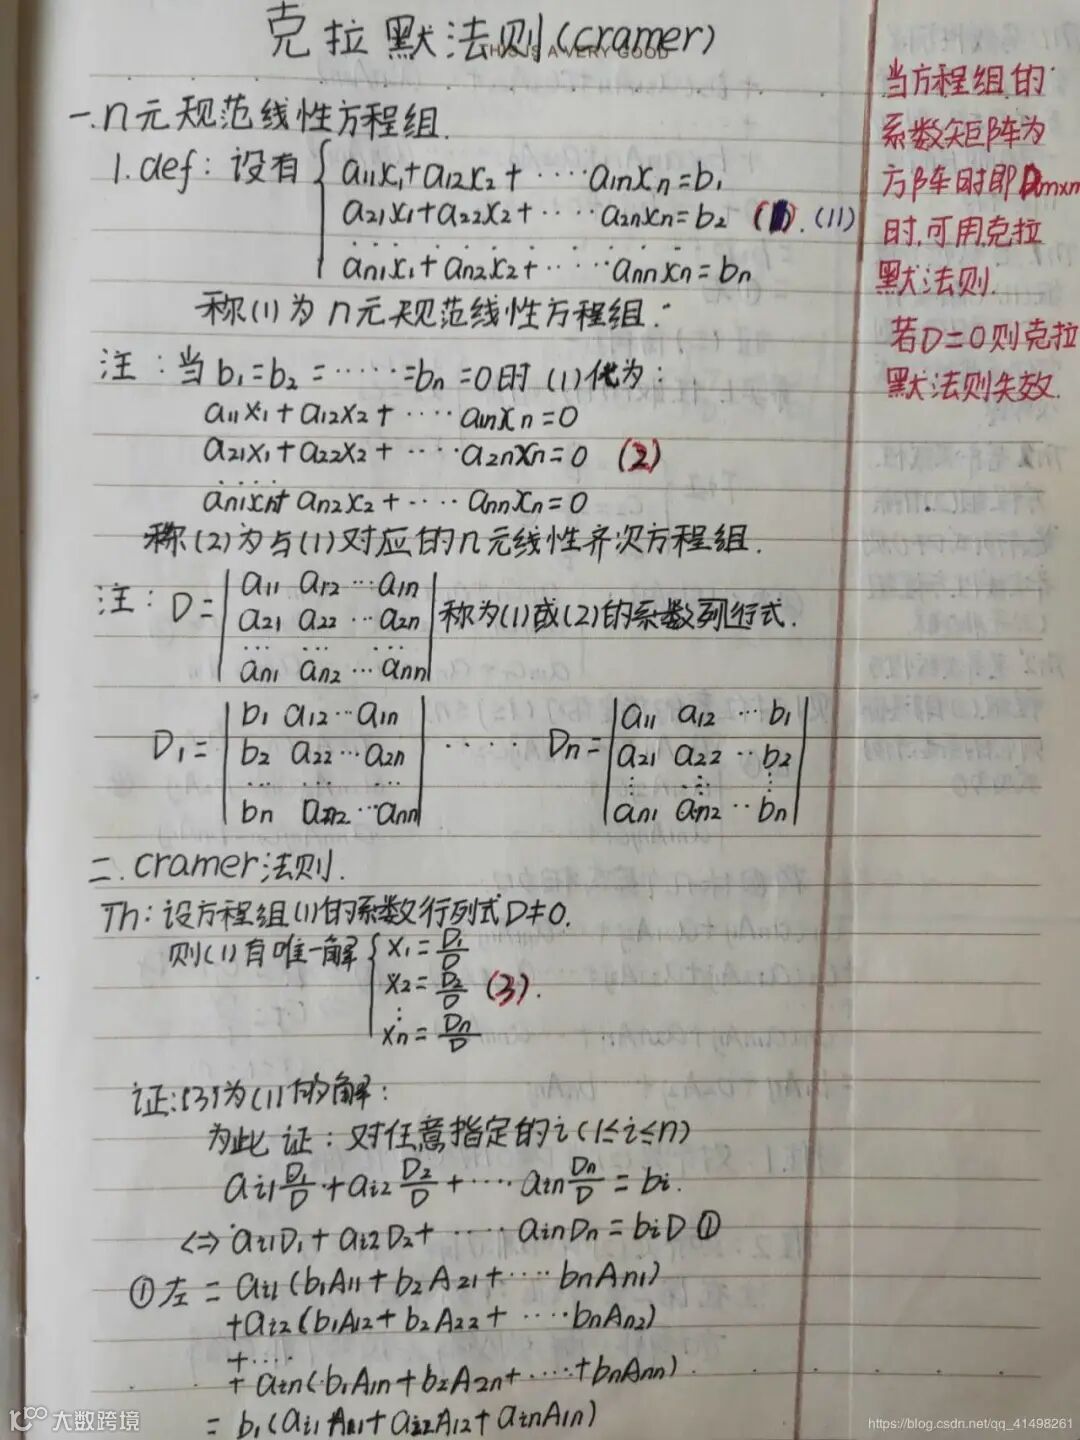 克拉默法则(cramer)
THIS IS A VERY GOOD
一.n元规范线性方程组.
1.def: 设有 { a11x1+a12x2+‥‥a1nxn=b1
a21x1+a22x2+‥‥a2nxn=b2 (1).(11)
‥‥‥‥‥‥
an1x1+an2x2+‥‥annxn=bn
称(1)为n元规范线性方程组.
注:当b1=b2=‥‥=bn=0时(1)化为:
a11x1+a12x2+‥‥a1nxn=0
a21x1+a22x2+‥‥a2nxn=0 (2)
‥‥
an1x1+an2x2+‥‥annxn=0
称(2)为与(1)对应的n元线性齐次方程组.
注: D= | a11 a12 ‥a1n |
| a21 a22 ‥a2n | 称为(1)或(2)的系数列行式.
| ‥ ‥ ‥ |
| an1 an2 ‥ann |
D1= | b1 a12‥a1n | ‥‥ Dn= | a11 a12 ‥b1 |
| b2 a22‥a2n | | a21 a22 ‥b2 |
| ‥ ‥ ‥ | | ⋮ ⋮ ⋮ |
| bn an2‥ann | | an1 an2 ‥bn |
二.cramer法则.
Th:设方程组(1)的系数行列式D≠0.
则(1)有唯一解 { x1=D1/D
x2=D2/D (3).
⋮
xn=Dn/D
证:(3)为(1)的解:
为此证:对任意指定的i(1≤i≤n)
ai1 D1/D+ai2 D2/D+‥‥ain Dn/D=bi.
<=> ai1D1+ai2D2+‥‥ainDn=biD ①
①左=ai1(b1A11+b2A21+‥‥bnAn1)
+ai2(b1A12+b2A22+‥‥bnAn2)
+‥‥
+ain(b1A1n+b2A2n+‥‥+bnAnn)
=b1(ai1A11+ai2A12+ainA1n)
当方程组的
系数矩阵为
方阵时即Dmxn
时,可用克拉
默法则.
若D=0则克拉
默法则失效.
大数跨境
https://blog.csdn.net/qq_41498261